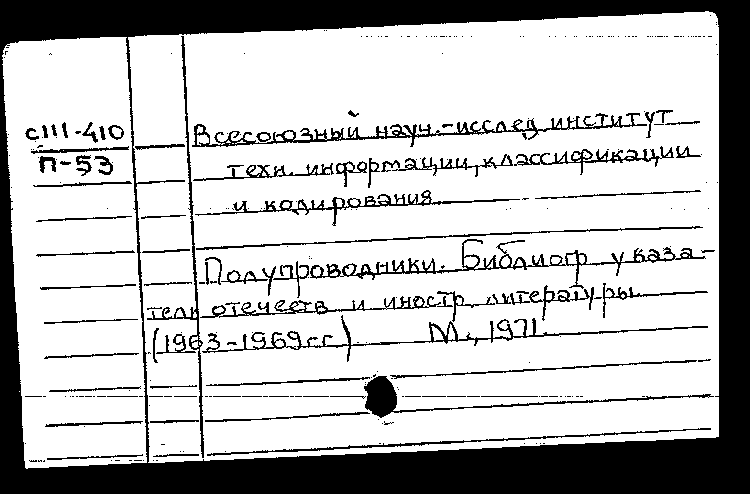 сIII-410
П-53
Всесоюзный науч.-исслед институт
техн. информации, классификации
и кодирования
Полупроводники. Библиогр указа-
тель отечеств и иностр. литературы
(1963-1969гг) М., 1971.